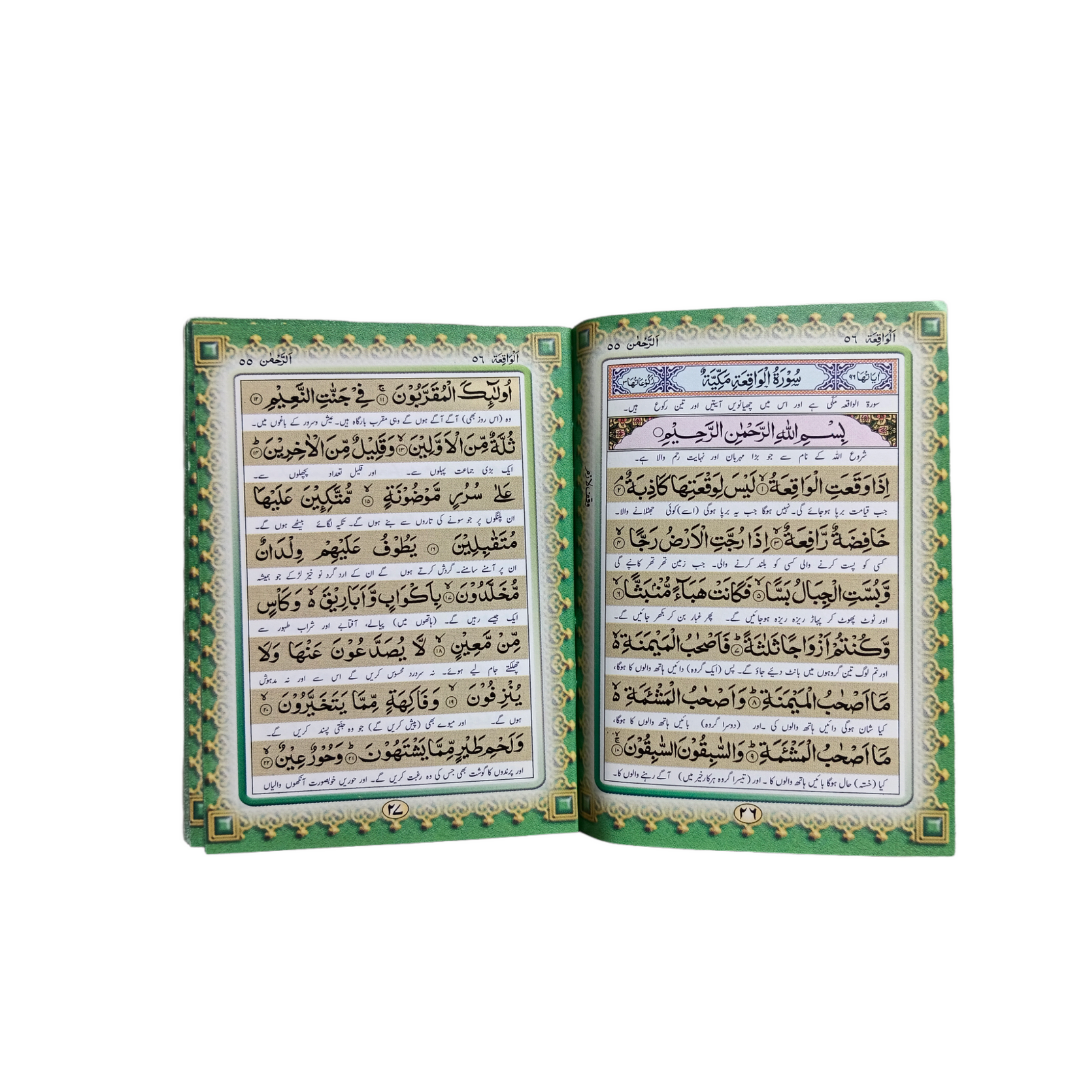 اَلرَّحْمٰن ٥٥
اَلْوَاقِعَة ٥٦
اٰيَاتُهَا ٩٦
سُوْرَةُ الْوَاقِعَةِ مَكِّيَّةٌ
رُكُوْعَاتُهَا ٣
سورۃ الواقعہ مکی ہے اور اس میں چھیانویں آیتیں اور تین رکوع ہیں۔
بِسْمِ اللّٰهِ الرَّحْمٰنِ الرَّحِيْمِ
شروع اللہ کے نام سے جو بڑا مہربان اور نہایت رحم والا ہے۔
اِذَا وَقَعَتِ الْوَاقِعَةُ ۙ‏﴿١﴾ لَيْسَ لِوَقْعَتِهَا كَاذِبَةٌ ۘ‏﴿٢﴾
جب قیامت برپا ہوجائے گی۔ نہیں ہوگا جب یہ برپا ہوگی (اسے) کوئی جھٹلانے والا۔
خَافِضَةٌ رَّافِعَةٌ ۙ‏﴿٣﴾ اِذَا رُجَّتِ الْاَرْضُ رَجًّا ۙ‏﴿٤﴾
کسی کو پست کرنے والی کسی کو بلند کرنے والی۔ جب زمین تھر تھر کانپے گی
وَّبُسَّتِ الْجِبَالُ بَسًّا ۙ‏﴿٥﴾ فَكَانَتْ هَبَآءً مُّنْۢبَثًّا ۙ‏﴿٦﴾
اور ٹوٹ پھوٹ کر پہاڑ ریزہ ریزہ ہوجائیں گے۔ پھر غبار بن کر بکھر جائیں گے۔
وَّكُنْتُمْ اَزْوَاجًا ثَلٰثَةً ؕ‏﴿٧﴾ فَاَصْحٰبُ الْمَيْمَنَةِ ۙ
اور تم لوگ تین گروہوں میں بانٹ دیئے جاؤ گے۔ پس (ایک گروہ) دائیں ہاتھ والوں کا ہوگا،
مَاۤ اَصْحٰبُ الْمَيْمَنَةِ ؕ‏﴿٨﴾ وَاَصْحٰبُ الْمَشْـَٔمَةِ ۙ
کیا شان ہوگی دائیں ہاتھ والوں کی۔ اور (دوسرا گروہ) بائیں ہاتھ والوں کا ہوگا،
مَاۤ اَصْحٰبُ الْمَشْـَٔمَةِ ؕ‏﴿٩﴾ وَالسّٰبِقُوْنَ السّٰبِقُوْنَ ۚ‏﴿١٠﴾
کیا (خستہ) حال ہوگا بائیں ہاتھ والوں کا۔ اور (تیسرا گروہ ہرکارخیر میں) آگے رہنے والوں کا۔
٢٦
اَلرَّحْمٰن ٥٥
اَلْوَاقِعَة ٥٦
اُولٰٓئِكَ الْمُقَرَّبُوْنَ ۚ‏﴿١١﴾ فِيْ جَنّٰتِ النَّعِيْمِ ‏﴿١٢﴾
وہ (اس روز بھی) آگے آگے ہوں گے وہی مقرب بارگاہ ہیں۔ عیش وسرور کے باغوں میں۔
ثُلَّةٌ مِّنَ الْاَوَّلِيْنَ ۙ‏﴿١٣﴾ وَقَلِيْلٌ مِّنَ الْاٰخِرِيْنَ ؕ‏﴿١٤﴾
ایک بڑی جماعت پہلوں سے۔ اور قلیل تعداد پچھلوں سے۔
عَلٰى سُرُرٍ مَّوْضُوْنَةٍ ۙ‏﴿١٥﴾ مُّتَّكِـِٕيْنَ عَلَيْهَا
ان پلنگوں پر جو سونے کی تاروں سے بنے ہوں گے۔ تکیہ لگائے بیٹھے ہوں گے۔
مُتَقٰبِلِيْنَ ‏﴿١٦﴾ يَطُوْفُ عَلَيْهِمْ وِلْدَانٌ
ان پر آمنے سامنے۔ گردش کرتے ہوں گے ان کے ارد گرد نو خیز لڑکے جو ہمیشہ
مُّخَلَّدُوْنَ ۙ‏﴿١٧﴾ بِاَكْوَابٍ وَّاَبَارِيْقَ ۙ وَكَاْسٍ
ایک جیسے رہیں گے۔ (ہاتھوں میں) پیالے، آفتابے اور شراب طہور سے
مِّنْ مَّعِيْنٍ ۙ‏﴿١٨﴾ لَّا يُصَدَّعُوْنَ عَنْهَا وَلَا
چھلکتے جام لیے ہوئے۔ نہ سردرد محسوس کریں گے اس سے اور نہ مدہوش
يُنْزِفُوْنَ ۙ‏﴿١٩﴾ وَفَاكِهَةٍ مِّمَّا يَتَخَيَّرُوْنَ ۙ‏﴿٢٠﴾
ہوں گے۔ اور میوے بھی (پیش کریں گے) جو وہ جنتی پسند کریں گے۔
وَلَحْمِ طَيْرٍ مِّمَّا يَشْتَهُوْنَ ؕ‏﴿٢١﴾ وَحُوْرٌ عِيْنٌ ۙ‏﴿٢٢﴾
اور پرندوں کا گوشت بھی جس کی وہ رغبت کریں گے۔ اور حوریں خوبصورت آنکھوں والیاں
٢٧